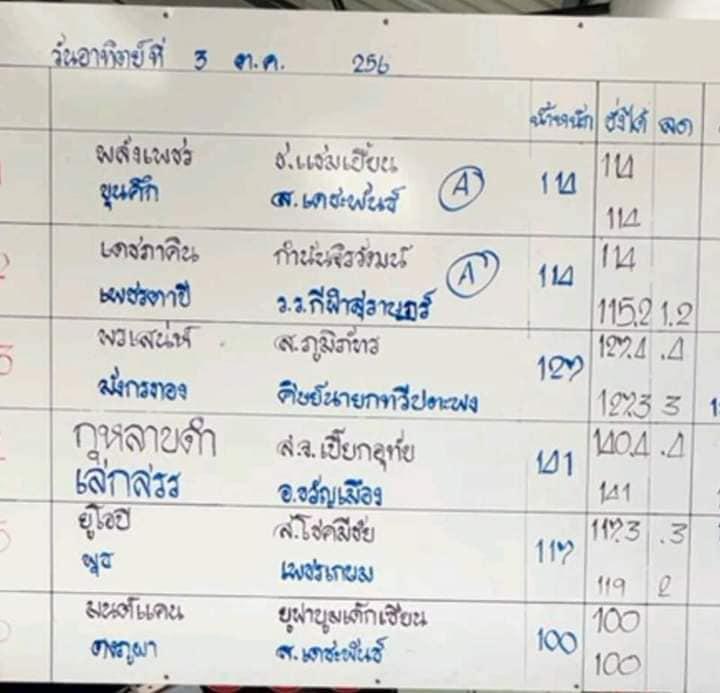 วันอาทิตย์ที่ 3 ต.ค. 256
น้ำหนัก ชั่งได้ ลด
พลังเพชร ช.แช่มเปี้ยน 114 114
ขุนศึก ส.เดชะพันธ์ A 114
2 เดชภาคิน กำนันจิรวัฒน์ 114 114
เพชรตาปี ร.ร.กีฬาสุราษฎร์ A 115.2 1.2
3 พรเสน่ห์ ส.ภูมิภัทร 127 127.4 .4
มังกรทอง ศิษย์นายกทวีปตะพง 127.3 3
กุหลาบดำ ส.จ.เปี๊ยกอุทัย 141 140.4 .4
เล็กสรร อ.ขวัญเมือง 141
5 ยูโอปี ส.โชคมีชัย 117 117.3 .3
เพชรเกษม 119 2
มนต์แคน 100 100
ดงภูผา ส.เดชะพันธ์ 100